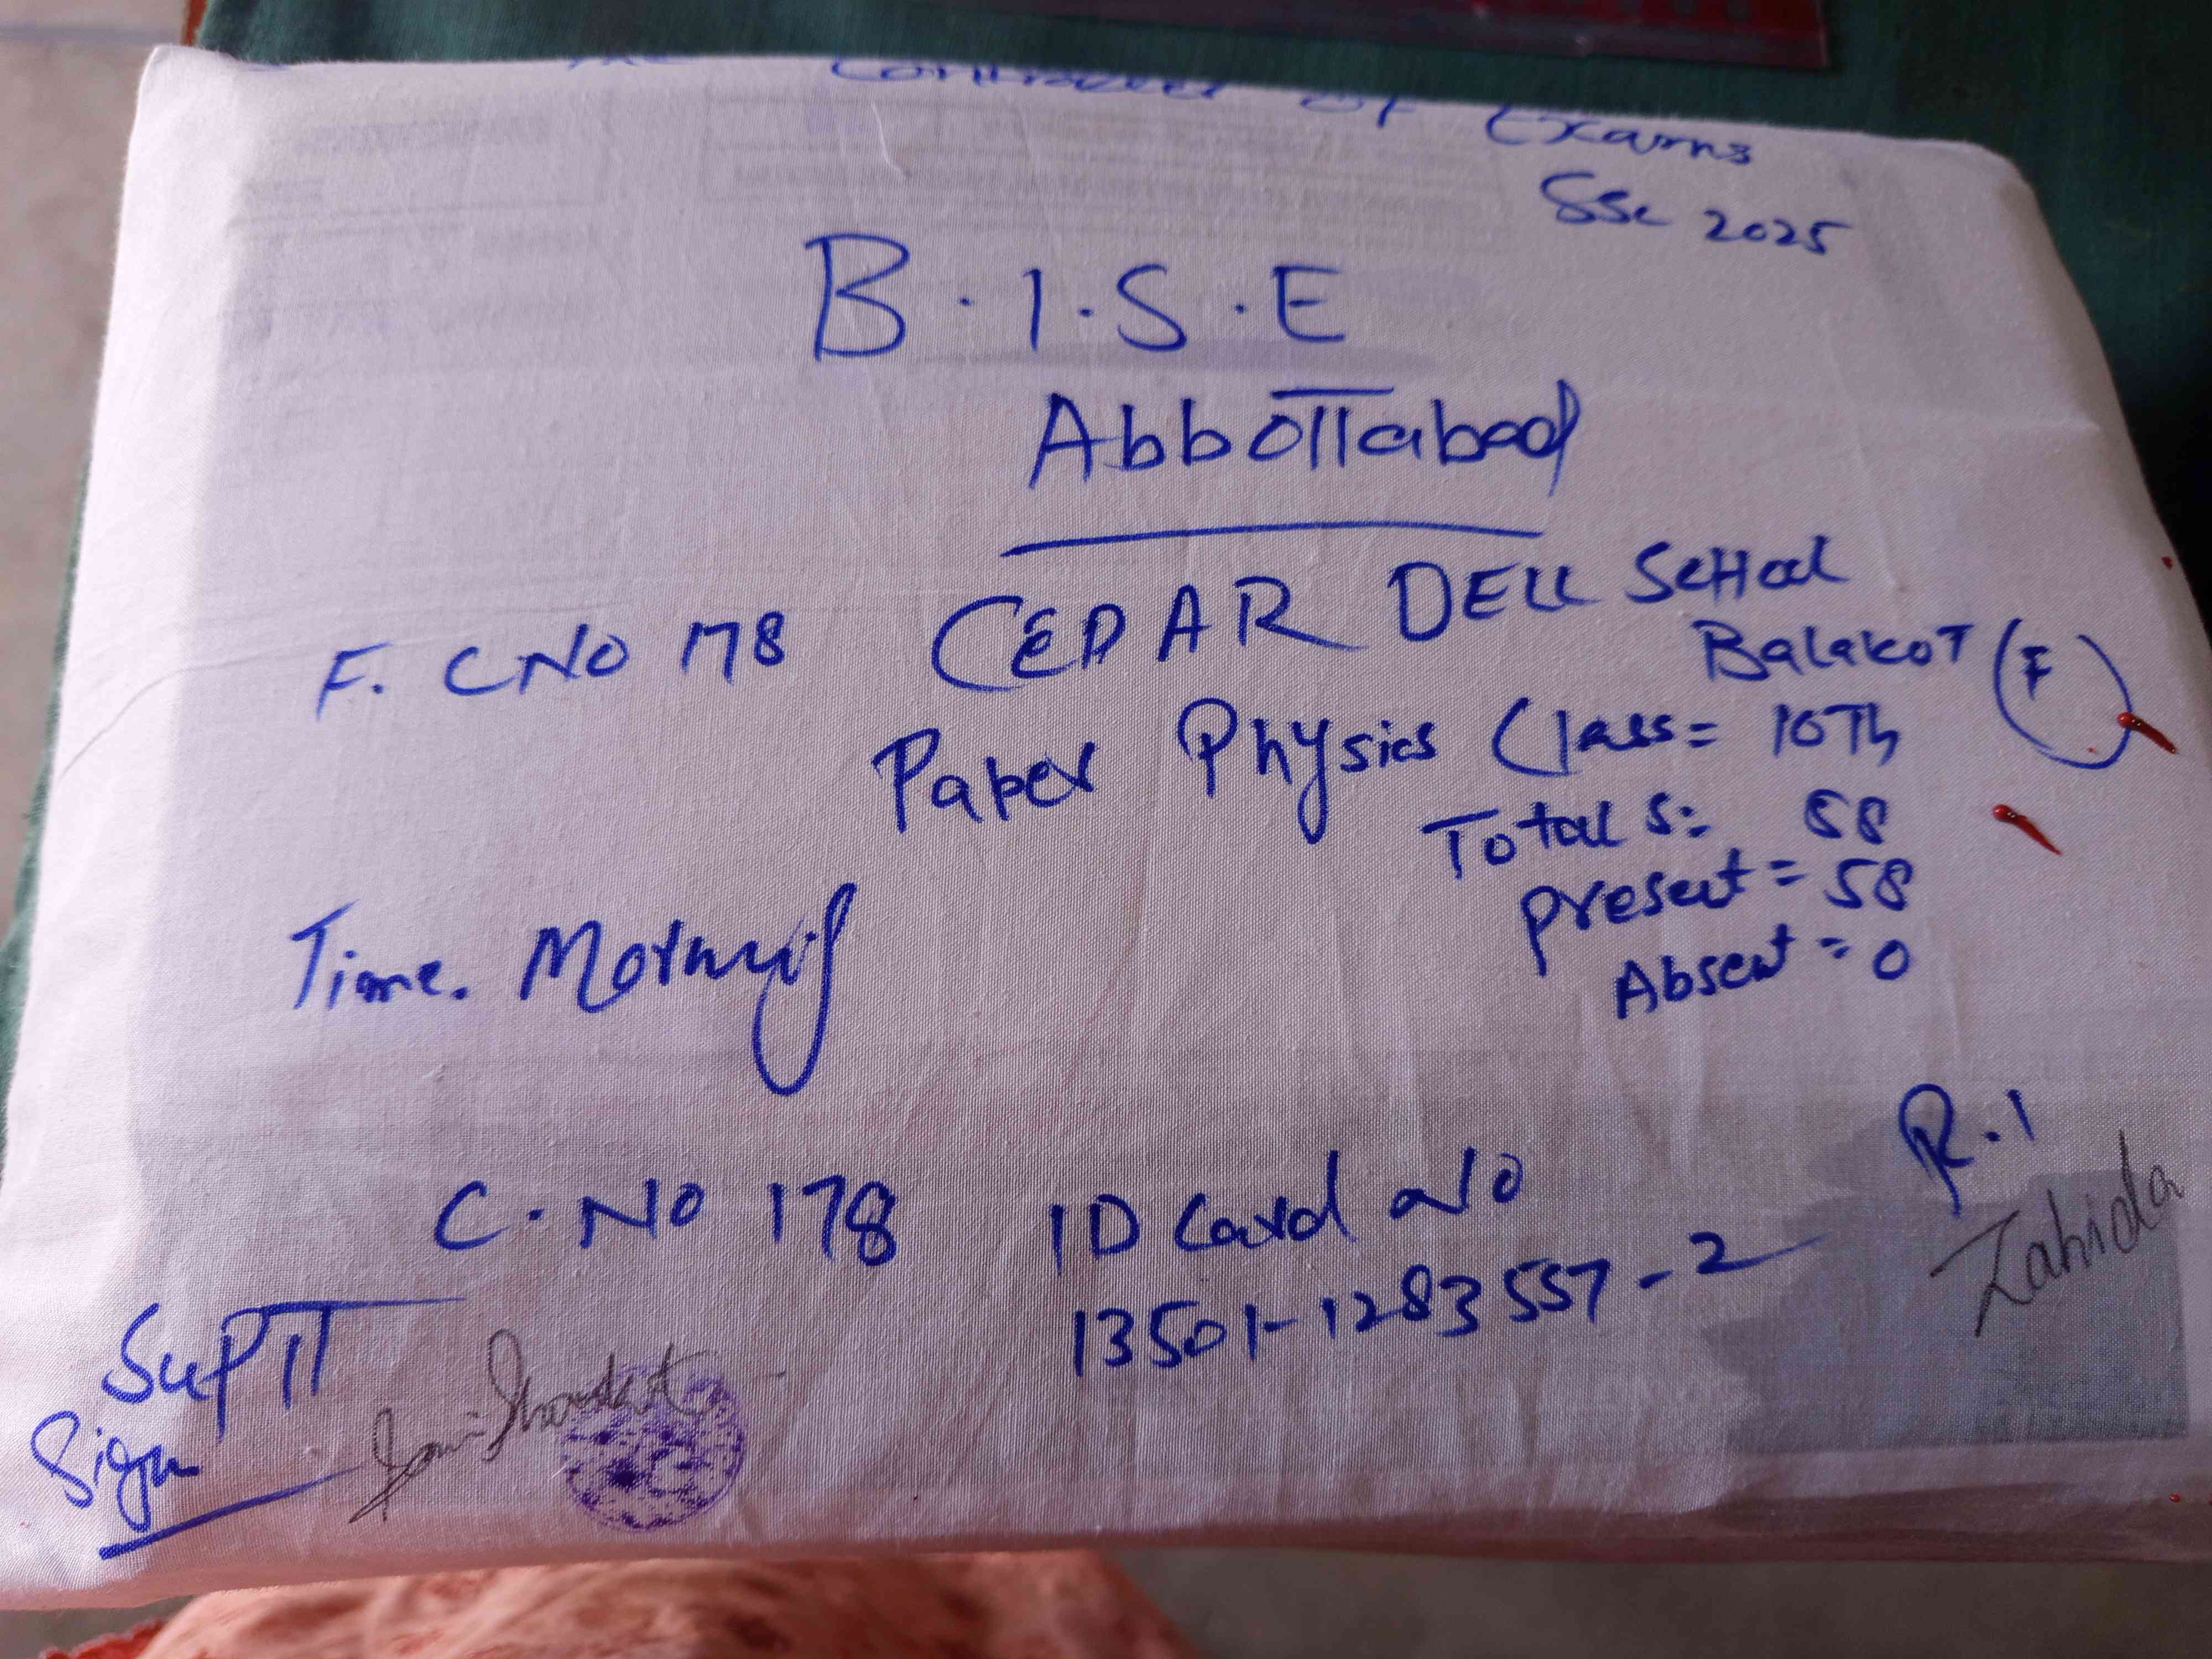 The Controller of Exams
SSC 2025
B.I.S.E
Abbottabad
F. C No 178 CEDAR DELL ScHool
Balakot (F)
Paper Physics Class = 10Th
Total S: 58
Present = 58
Absent = 0
Time. Morning
R.1
C. No 178 ID Card No
13501-1283557-2
Zahida
SupTT
Sign